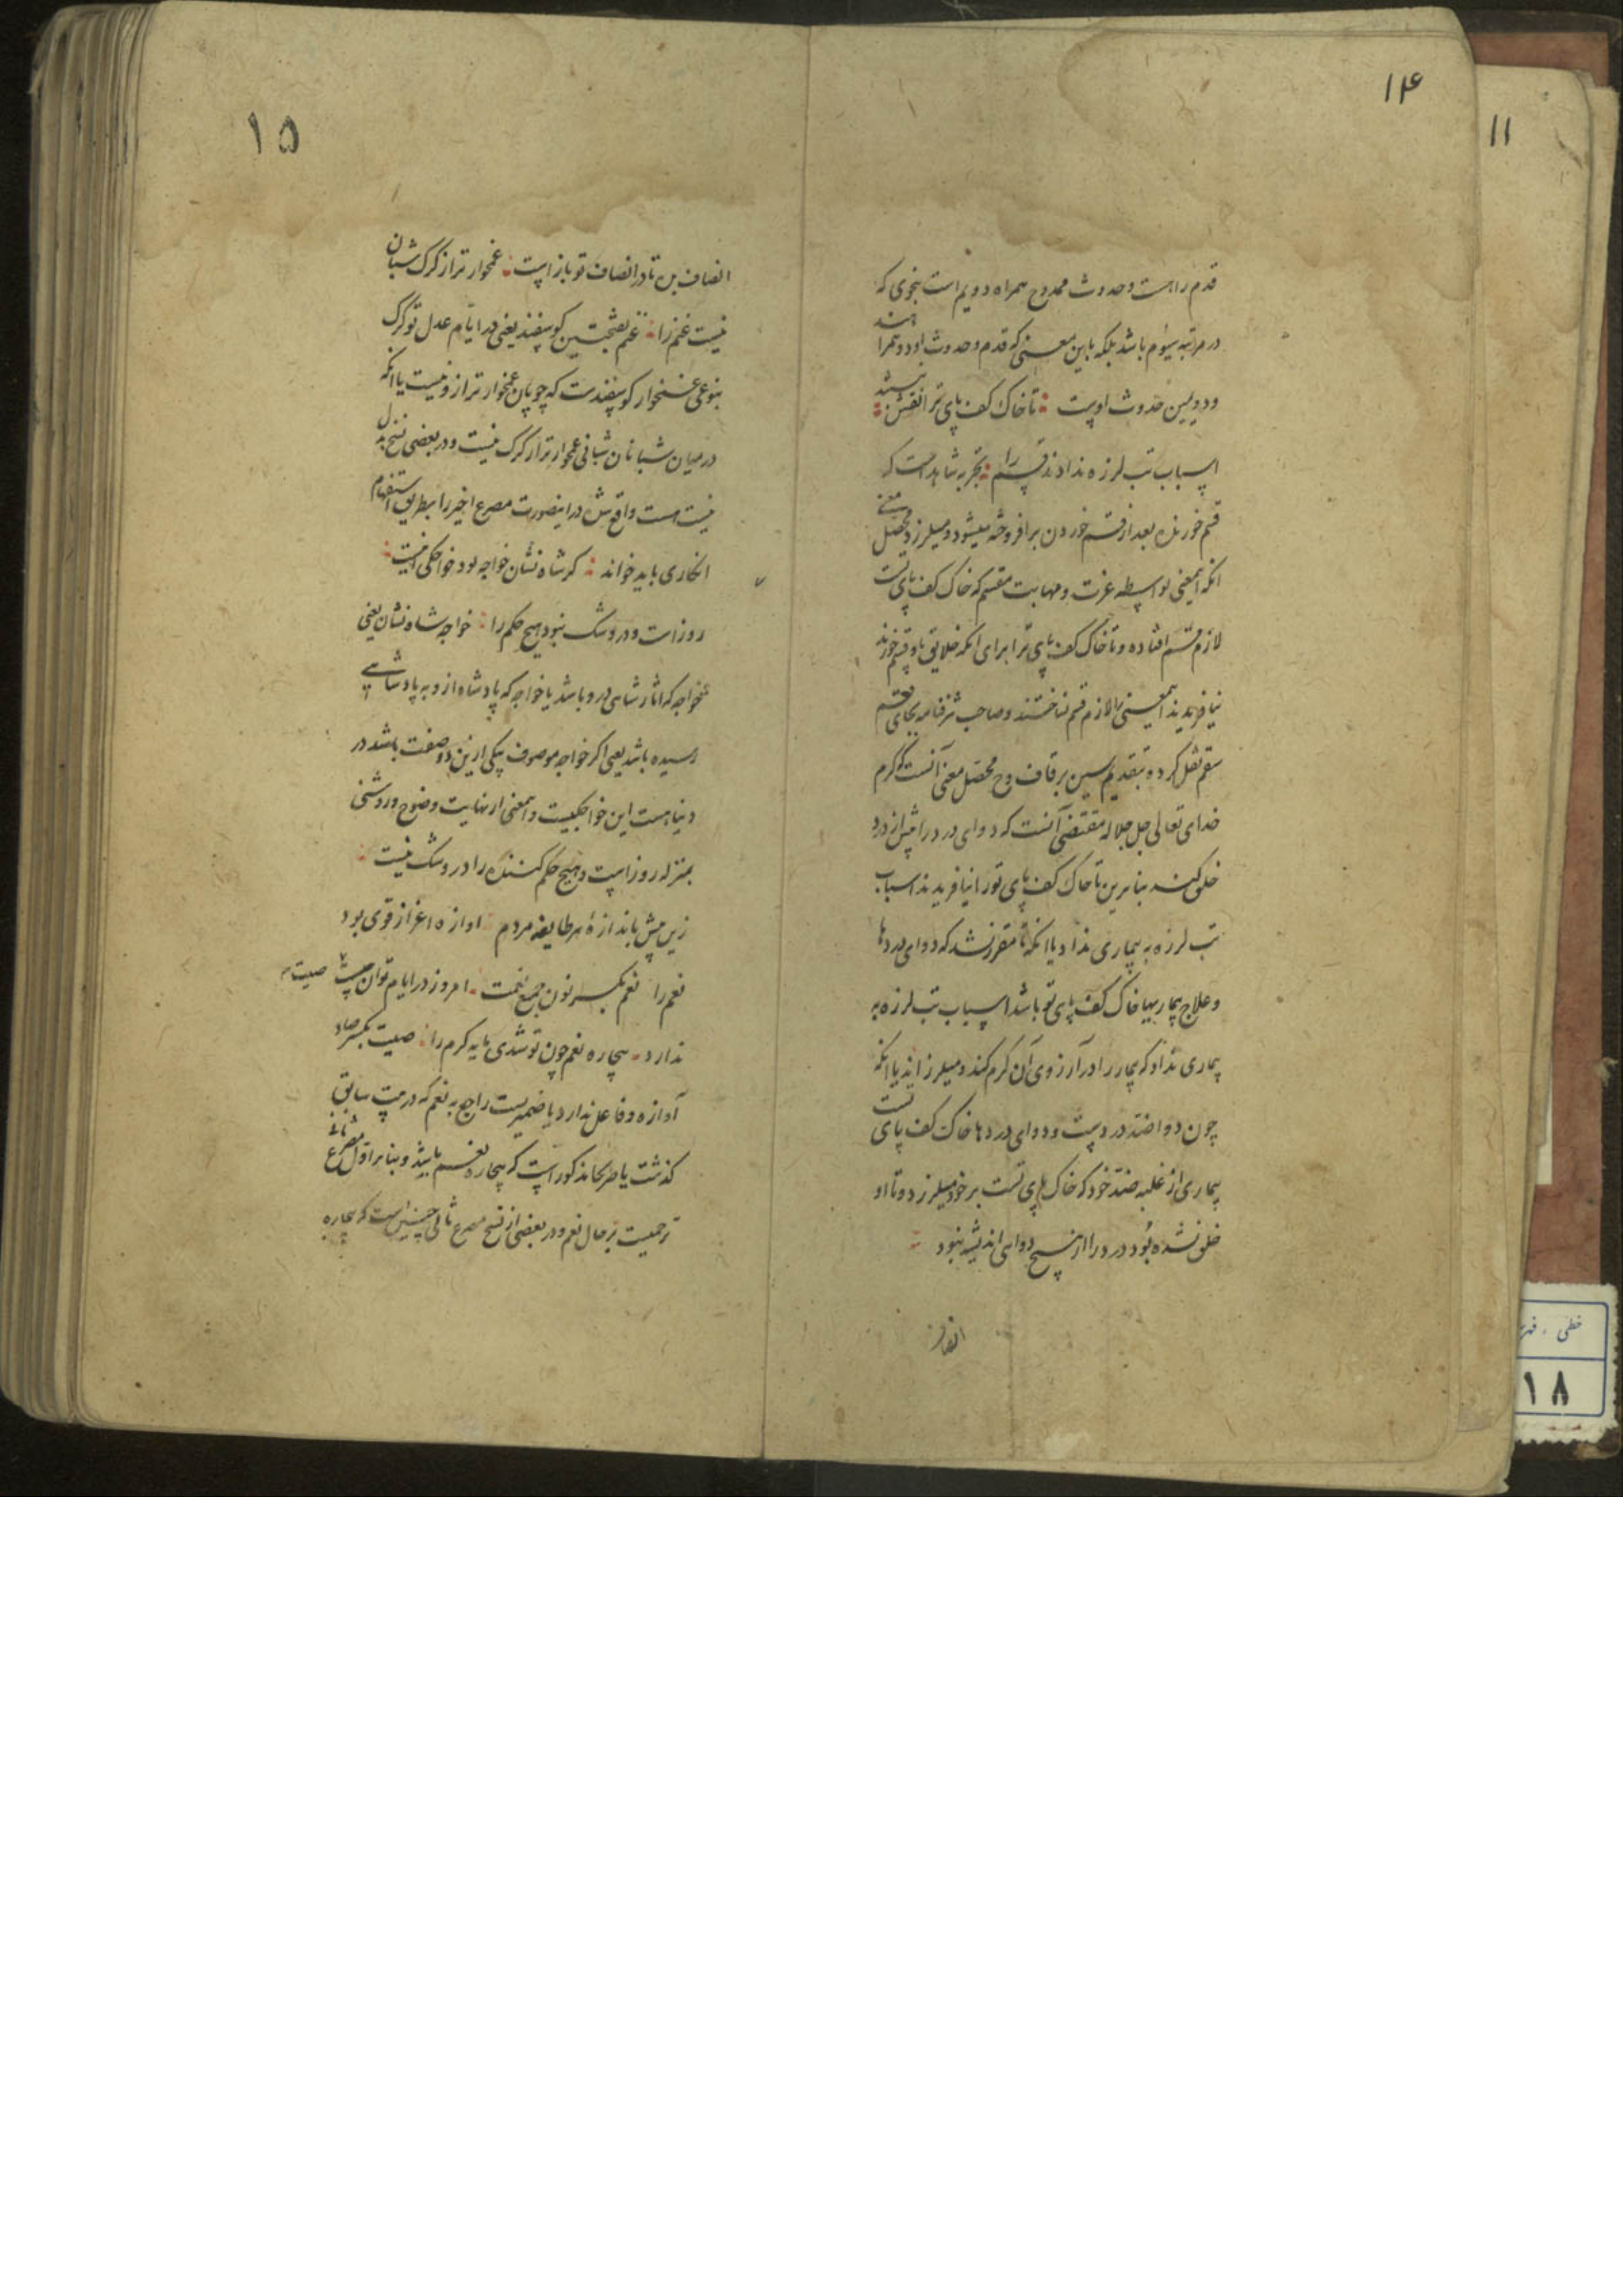 ۱۴
قدم راست وحدوث ممدوح همراه دویم است بنحوی که
در مرتبه سیوم باشد بلکه باین معنی که قدم وحدوث او دو همرا هند
ودویمین حدوث اوست تا خاک کف پای ترا نقش نبستند
اسباب تب لرزه ندادند قسم را تجربه شاهدست که
قسم خورنده بعد از قسم خوردن برافروخته میشود ومیلرزد ومحصل معنی
انکه اینمعنی بواسطه عزت ومهابت مقسم که خاک کف پای تست
لازم قسم افتاده وتا خاک کف پای ترا برای انکه خلایق باو قسم خورند
نیافریدند اینمعنی را لازم قسم نساختند وصاحب شرفنامه بجای قسم
سقم نقل کرده بتقدیم سین بر قاف وح محصل معنی آنست که کرم
خدای تعالی جل جلاله مقتضی آنست که دوای درد را پیش از درد
خلق کند بنابرین تا خاک کف پای تورا نیافریدند اسباب
تب لرزه به بیماری نداد یا انکه تا مقرر نشد که دوای دردها
وعلاج بیماریها خاک کف پای تو باشد اسباب تب لرزه به
بیماری نداد که بیمار را در آرزوی آن کرم کند ومیلرزاند یا انکه
چون دوا ضد دردست ودوای دردها خاک کف پای تست
بیماری از غلبه ضد خود که خاک پای تست بر خود میلرزد وتا او
خلق نشده بود درد را از هیچ دوای اندیشه نبود
انصاف
۱۵
انصاف بین تا در انصاف تو بازاست غمخوار تر از کرک شبان
نیست غنم را غنم بفتحتین کوسفند یعنی در ایام عدل تو کرک
بنوعی غمخوار کوسفندست که چوپان غمخوار تر ازو نیست یا انکه
در میان شبانان شبانی غمخوار تر از کرک نیست ودر بعضی نسخ بدل
نیست هست واقع شد در اینصورت مصرع اخیر را بطریق استفهام
انکاری باید خواند کر شاه نشان خواجه بود خواجکی اینست
روز است ودرو شک نبود هیچ حکم را خواجه شاه نشان یعنی
خواجه که اثار شاهی درو باشد یا خواجه که پادشاه ازو به پادشاهی
رسیده باشد یعنی اکر خواجه موصوف بیکی ازین دو صفت باشد در
دنیا هست این خواجکیست واینمعنی از نهایت وضوح وروشنی
بمنزله روز است وهیچ حکم کننده را درو شک نیست
زین پیش باندازهٔ هر طایفه مردم اوازه اعزاز قوی بود
نعم را نعم بکسر نون جمع نعمت امروز در ایام تو آن صیت
ندارد بیچاره نعم چون تو شدی مایه کرم را صیت بکسر صاد
آوازه وفاعل ندارد یا ضمیریست راجع به نعم که در بیت سابق
کذشت یا صریحا مذکور است که بیچاره نعم باشد وبنابر اول مصرع ثانی
ترحمیست بر حال نعم ودر بعضی از نسخ مصرع ثانی چنین است که بیچاره
۱۱
خطی
۱۸